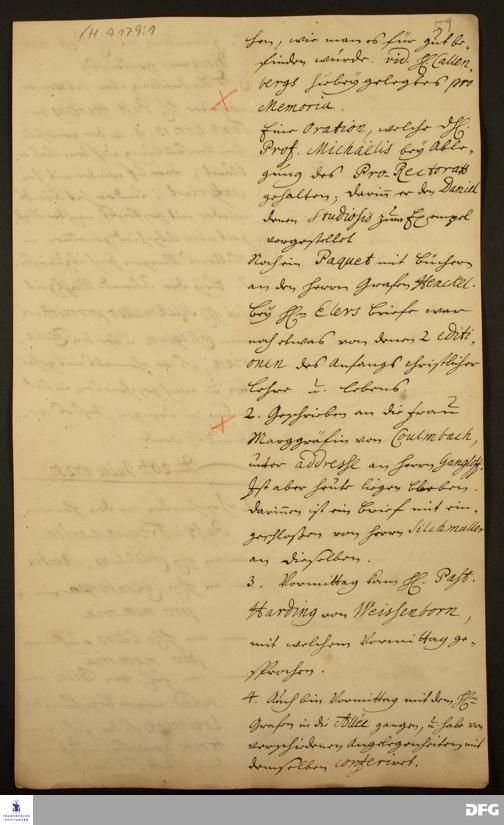 /H A 179:1
59
hen, wie man es für gut be-
finden würde. vid. H. Callen-
bergs hiebey gelegtes pro
Memoria.
Eine Oration, welche dH.
Prof. Michaëlis bey Able-
gung des Pro-Rectorats
gehalten; darinn er den Daniel
denen Studiosis zum Exempel
vorgestellet
Noch ein Paquet mit büchern
an den Herrn Grafen Henckel.
bey Hn Elers briefe war
noch etwas von denen 2 editi-
onen des Anfangs christlicher
Lehre u. Lebens.
2. Geschrieben an die Frau
Marggräfin von Coulmbach,
unter addresse an Herrn Gangloff.
Ist aber heute liegen blieben.
Darinnen ist ein brief mit ein-
geschloßen von Herrn Silchmuller
an dieselben.
3. Vormittag kam H. Past.
Harding von Weissenborn,
mit welchem Vormittag ge-
sprochen.
4. Auch bin Vormittag mit dem Hn
Grafen in die Allée gangen, u. habe von
verschiedenen Angelegenheiten mit
demselben conferiret.
FRANCKESCHE
STIFTUNGEN
DFG